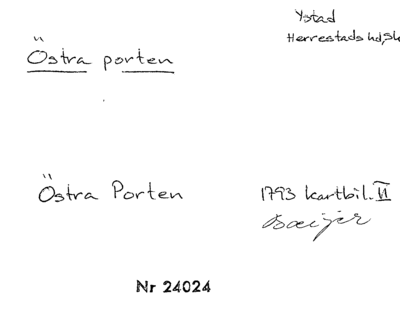 Ystad
Herrestads hd, Sk
Östra porten
Östra Porten
1793 kartbil. VI
Nr 24024